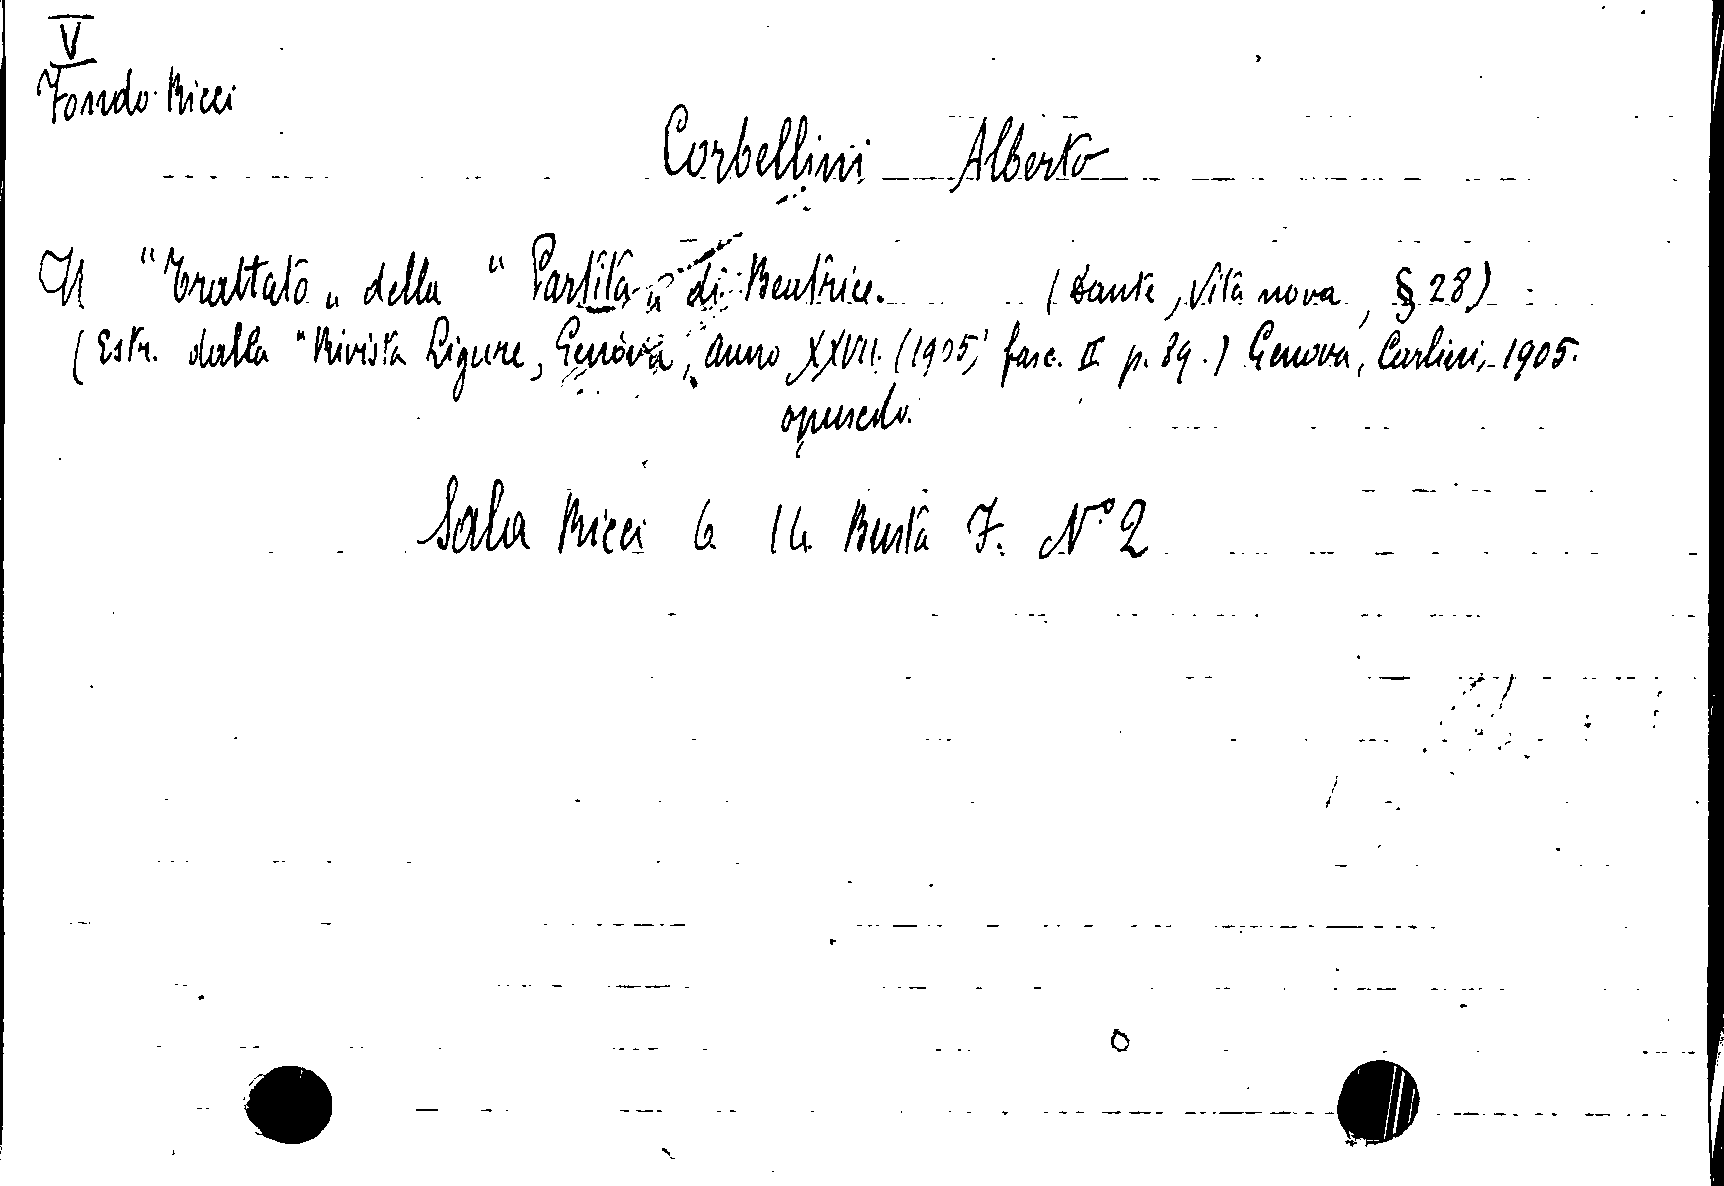 V
Fondo Ricci
Corbellini Alberto
Il "Trattato„ della "Partita„ di Beatrice. (Dante, Vita nova, § 28)
(Estr. dalla "Rivista Ligure, Genova, anno XXVII. (1905, fasc. II p. 89.) Genova, Carlini, 1905.
opuscolo.
Sala Ricci 6 14 Busta F. N° 2